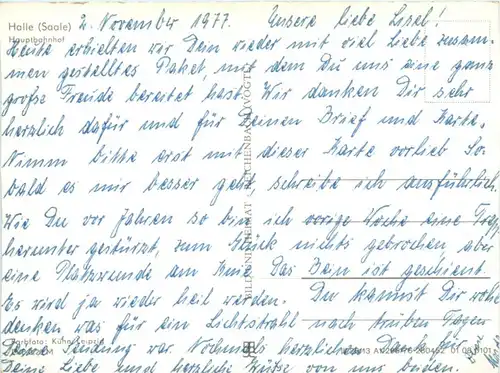 Halle (Saale)
Hauptbahnhof
2. November 1977.
Unsere liebe Lisel!
Heute erhielten wir Dein wieder mit viel Liebe zusam-
men gestelltes Paket, mit dem Du uns eine ganz
große Freude bereitet hast. Wir danken Dir sehr
herzlich dafür und für Deinen Brief und Karte.
Nimm bitte erst mit dieser Karte vorlieb So-
bald es mir besser geht, schreibe ich ausführlich
Wie Du vor Jahren so bin ich vorige Woche eine Trepp
herunter gestürzt, zum Glück nichts gebrochen aber
eine Platzwunde am Knie. Das Bein ist geschient
Es wird ja wieder heil werden. Du kannst Dir wohl
denken was für ein Lichtstrahl nach trüben Tagen
Deine Sendung war. Nochmals herzlichen Dank für
Deine Liebe und herzliche Grüße von uns beiden
BILD UND HEIMAT REICHENBACH (VOGTL)
Farbfoto: Kühn, Leipzig